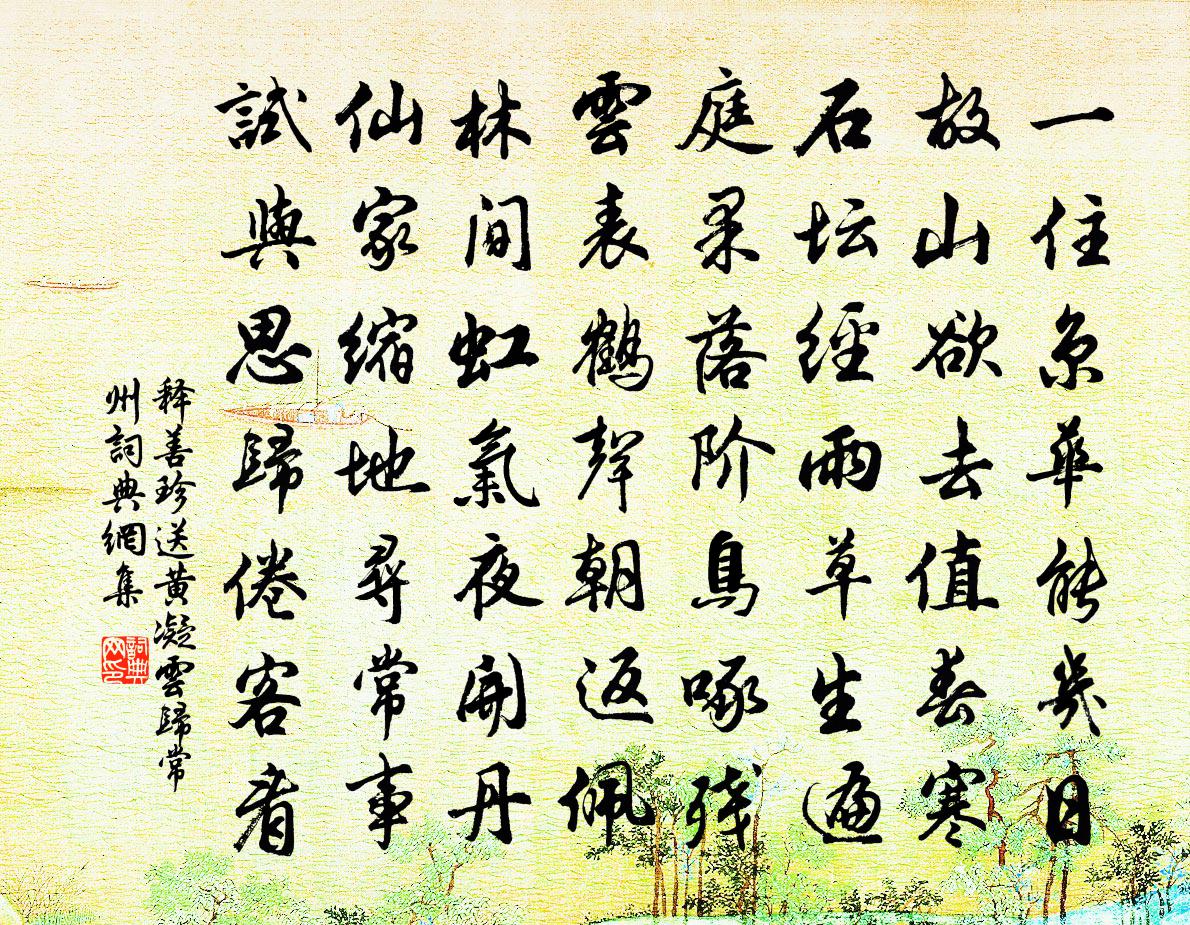 一住京華能幾日
故山欲去值春寒
石坛經雨草生遍
庭果落阶鳥啄残
雲表鶴聲朝返佩
林间虹氣夜開丹
仙家縮地尋常事
試與思歸倦客看
释善珍送黄凝雲歸常
州詞典網集
詞典
网印